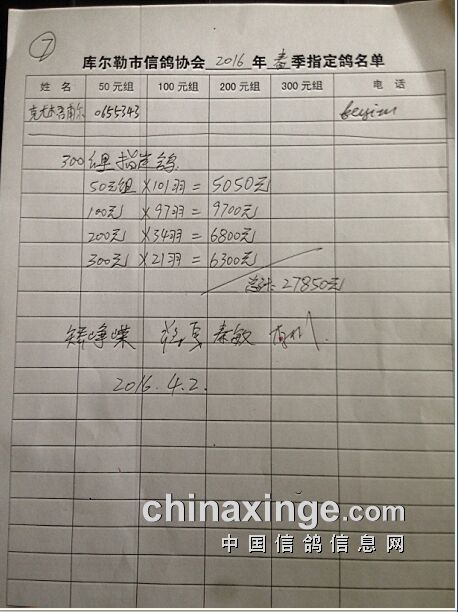 7
库尔勒市信鸽协会 2016 年 春 季指定鸽名单
姓 名 50元组 100元组 200元组 300元组 电 话
0655343
300组指定鸽
50元组 ×101羽 = 5050元
100元 ×97羽 = 9700元
200元 ×34羽 = 6800元
300元 ×21羽 = 6300元
总计: 27850元
秦敏
2016.4.2.
chinaxinge.com
中国信鸽信息网